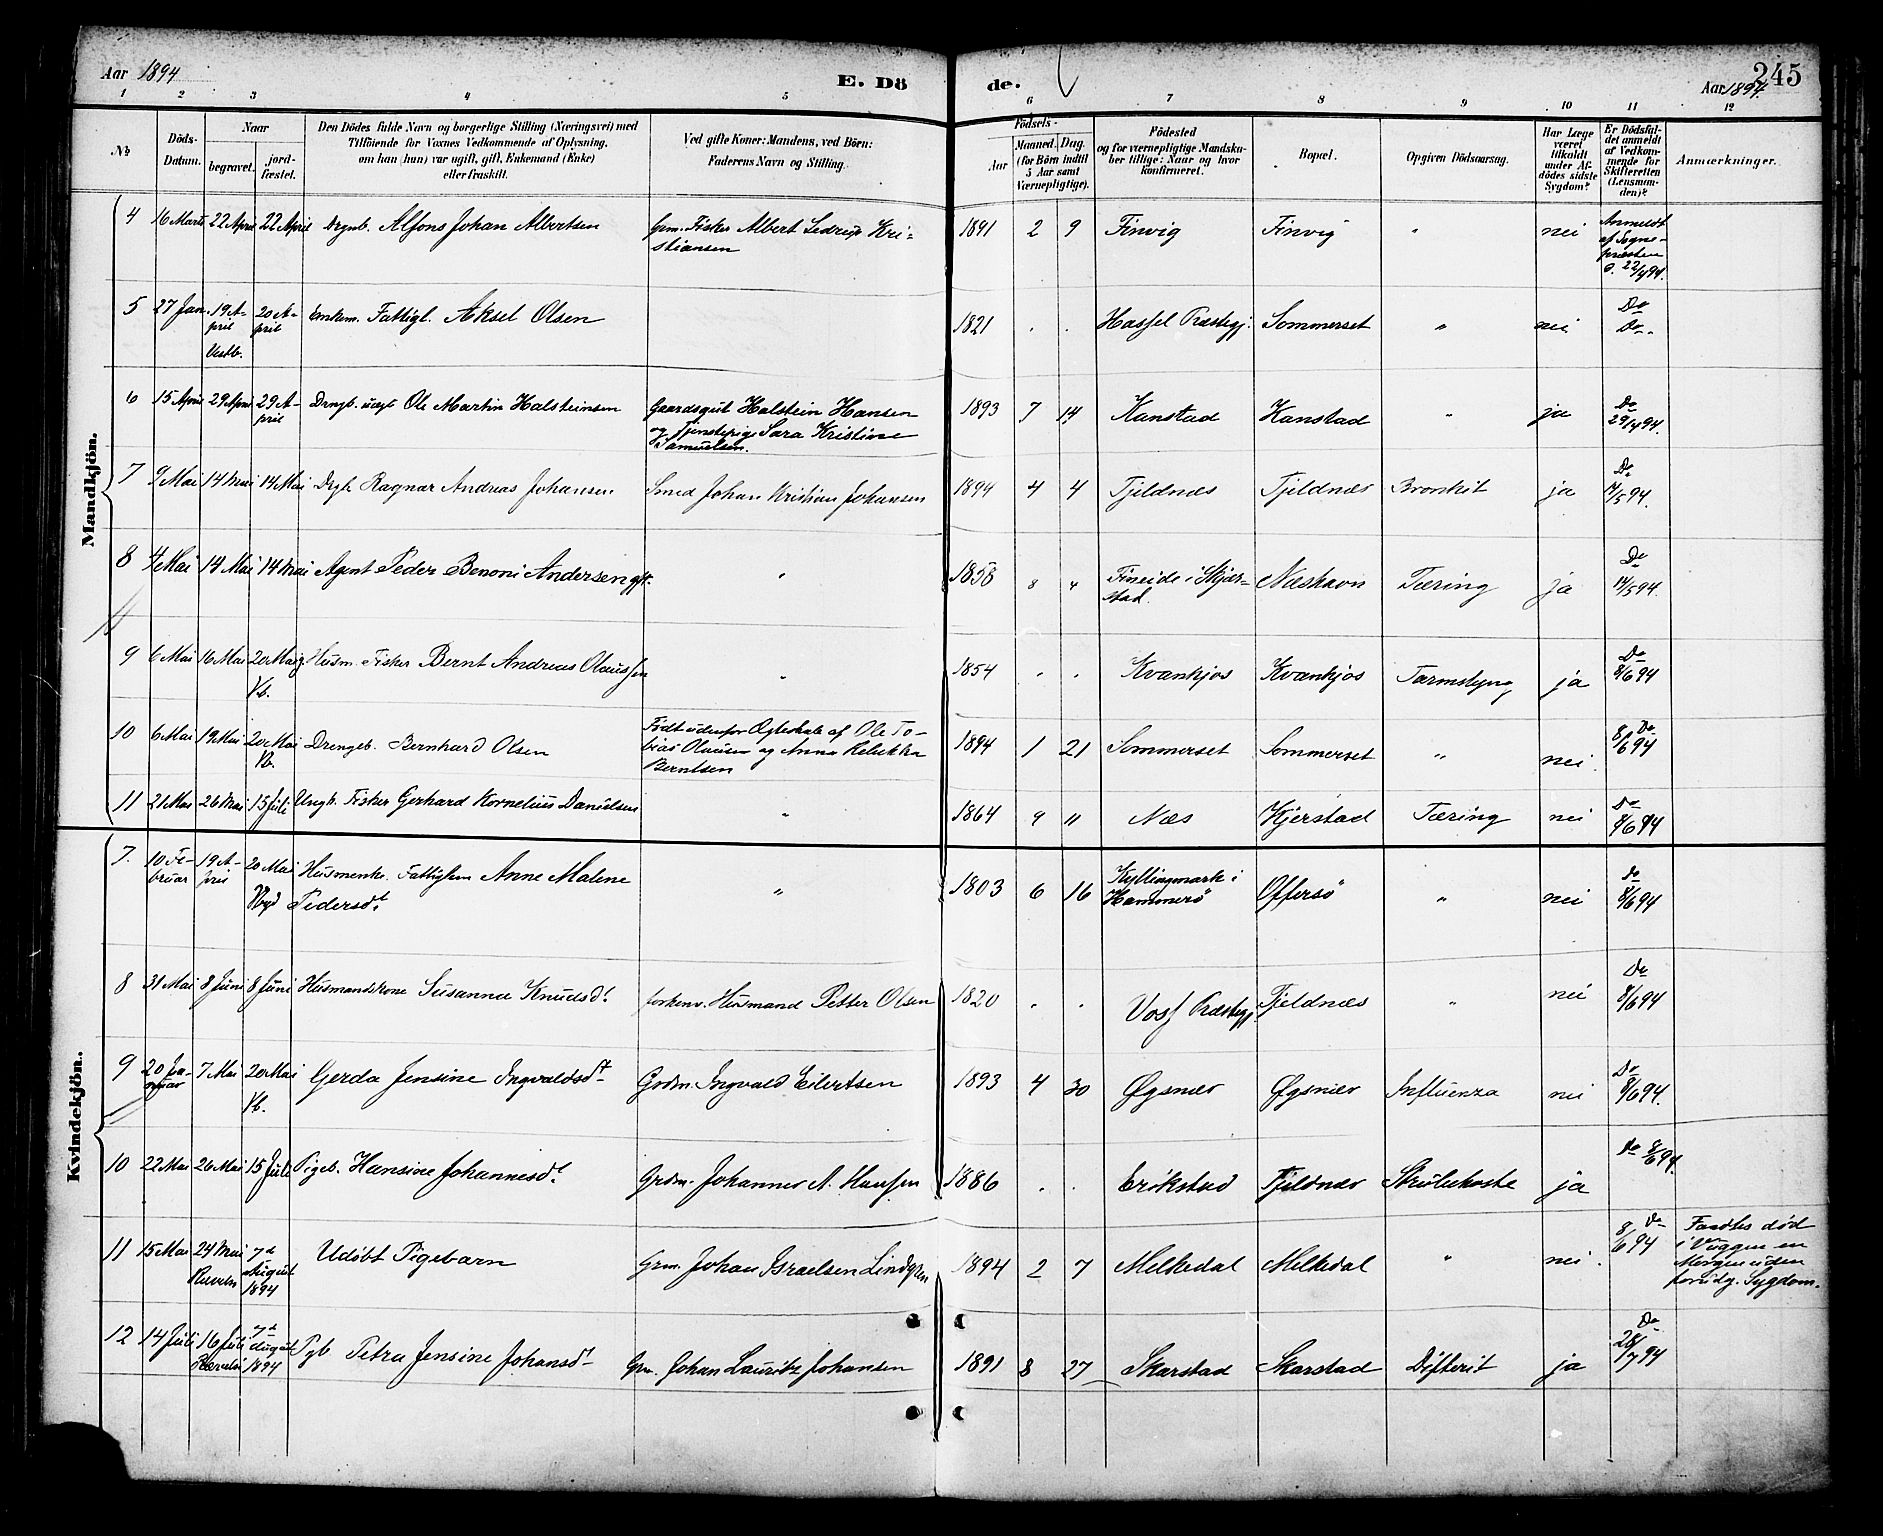 Aar 1894
E. Dö
de.
Aar 1894.
245
1 2 3 4 5 6 7 8 9 10 11 12
№
Döds-
Datum.
Naar
begravet.
jord-
fæstet.
Den Dödes fulde Navn og borgerlige Stilling (Næringsvei) med
Tilföiende for Voxnes Vedkommende af Oplysning,
om han (hun) var ugift, gift, Enkemand (Enke)
eller fraskilt.
Ved gifte Koner: Mandens, ved Börn:
Faderens Navn og Stilling.
Födsels-
Aar
Maaned. Dag.
(for Börn indtil
5 Aar samt
Værnepligtige).
Födested
og for værnepligtige Mandska-
ber tillige: Naar og hvor
konfirmeret.
Bopæl.
Opgiven Dödsaarsag.
Har Læge
været
tilkaldt
under Af-
dödes sidste
Sygdom?
Er Dödsfal-
det anmeldt
af Vedkom-
mende for
Skifteretten
(Lensman-
den)?
Anmærkninger.
Mandkjön.
4 16 Marts 22 April 22 April Drgnb. Alfons Johan Albertsen Grm. Fisker Albert Sedrup Kri-
stiansen 1891 2 9 Finvig Finvig " nei Anmeldt
af Sogne-
præsten
d. 22/4 94.
5 27 Jan. 19 A-
pril
Vestb. 20 A-
pril Enkem. Fattigl. Aksel Olsen 1821 . . Hassel Præstegj. Sommerset " nei Do
Do.
6 15 April 29 April 29 A-
pril Drngb. uægt Ole Martin Halsteinsen Gaardsgut Halstein Hansen
og Tjenstepige Sara Kristine
Samuelsen. 1893 7 14 Kanstad Kanstad " ja Do
29/4 94.
7 9 Mai 14 Mai 14 Mai Drgb. Ragnar Andreas Johansen Smed Johan Kristian Johansen 1894 4 4 Tjeldnæs Tjeldnæs Bronkit ja Do
14/5 94.
8 4 Mai 14 Mai 14 Mai Agent Peder Benoni Andersen gft. " 1858 8 4 Fineide i Skjær-
stad. Næshavn Tæring ja Do
14/5 94.
9 6 Mai 16 Mai 20 Mai
Vb. Husm. Fisker Bernt Andreas Olaussen " 1854 . . Kvankjos Kvankjos Tarmslyng ja Do
8/6 94
10 6 Mai 19 Mai 20 Mai
Vb. Drengeb. Bernhard Olsen Født udenfor Ægteskab af Ole To-
bias Olausen og Anna Rebekka
Berntsen 1894 1 21 Sommerset Sommerset " nei. Do
8/6 94
11 21 Mai 26 Mai 15 Juli Ungk. Fisker Gerhard Kornelius Danielsen " 1864 9 11 Næs Kjerstad Tæring nei Do
8/6 94
Kvindekjön.
7. 10 Fe-
bruar 19 A-
pril 20 Mai Husmenke. Fattiglem Anne Malene
Pedersdt. " 1803 6 16 Kyllingmark i
Hammerö Offersö " nei Do
8/6 94
8 31 Mai 8 Juni 8 Juni Husmandskone Susanna Knudsdt. forhenv. Husmand Petter Olsen 1820 . . Voss Præstegj. Tjeldnæs " nei Do
8/6 94
9 20 Ja-
nuar 7 Mai 20 Mai
Vb. Gerda Jensine Ingvaldsdt Grdm. Ingvald Eilertsen 1893 4 30 Øgsnæs Øgsnæs Influenza nei Do
8/6 94.
10 22 Mai 26 Mai 15 Juli Pigeb. Hansine Johannesdt Grdm. Johannes A. Hansen 1886 . . Erikstad Tjeldnæs Strubehoste ja Do 8/6 94.
11 15 Mai 24 Mai 7de
August
1894 Udøbt Pigebarn Grm. Johan Israelsen Lindgren 1894 2 7 Melkedal Melkedal " nei. Do
8/6 94 Fandtes død
i Vuggen en
Morgen uden
forudg. Sygdom.
12 14 Juli 16 Juli 7de
August
1894 Pgb Petra Jensine Johansdt Grm. Johan Lauritz Johansen 1891 8 27 Skarstad Skarstad Difterit ja Do
28/7 94